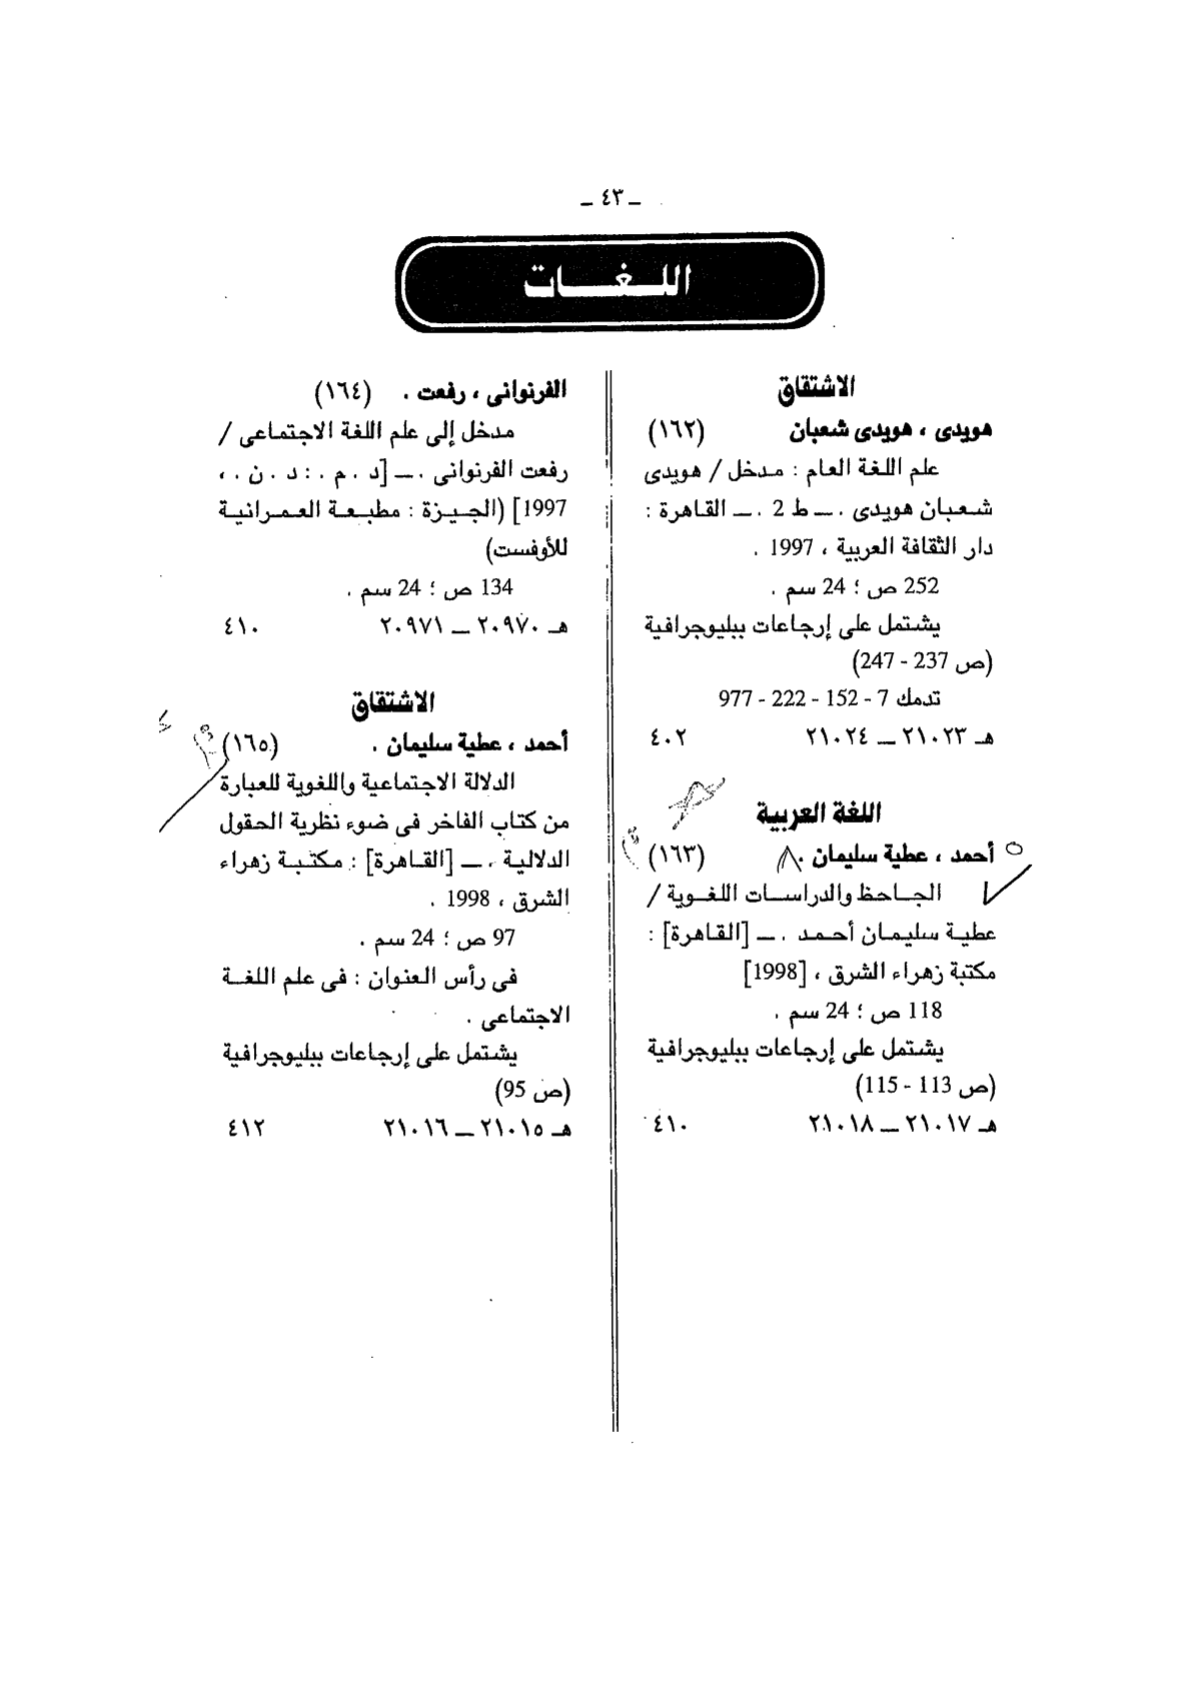 ـ ٤٣ ـ
اللـغـات
الاشتقاق
هويدى ، هويدى شعبان (١٦٢)
علم اللغة العام : مدخل / هويدى
شعبان هويدى . ـ ط 2 . ـ القاهرة :
دار الثقافة العربية ، 1997 .
252 ص ؛ 24 سم .
يشتمل على إرجاعات ببليوجرافية
(ص 237 - 247)
تدمك 7 - 152 - 222 - 977
هـ ٢١٠٢٣ ـ ٢١٠٢٤ ٤٠٢
اللغة العربية
أحمد ، عطية سليمان . (١٦٣)
الجـاحظ والدراسـات اللغـوية /
عطية سليمان أحمد . ـ [القاهرة] :
مكتبة زهراء الشرق ، [1998]
118 ص ؛ 24 سم .
يشتمل على إرجاعات ببليوجرافية
(ص 113 - 115)
هـ ٢١٠١٧ ـ ٢١٠١٨ ٤١٠
الفرنوانى ، رفعت . (١٦٤)
مدخل إلى علم اللغة الاجتماعى /
رفعت الفرنوانى . ـ [د . م . : د . ن . ،
1997] (الجيزة : مطبعة العمرانية
للأوفست)
134 ص ؛ 24 سم .
هـ ٢٠٩٧٠ ـ ٢٠٩٧١ ٤١٠
الاشتقاق
أحمد ، عطية سليمان . (١٦٥)
الدلالة الاجتماعية واللغوية للعبارة
من كتاب الفاخر فى ضوء نظرية الحقول
الدلالية . ـ [القاهرة] : مكتبة زهراء
الشرق ، 1998 .
97 ص ؛ 24 سم .
فى رأس العنوان : فى علم اللغة
الاجتماعى .
يشتمل على إرجاعات ببليوجرافية
(ص 95)
هـ ٢١٠١٥ ـ ٢١٠١٦ ٤١٢